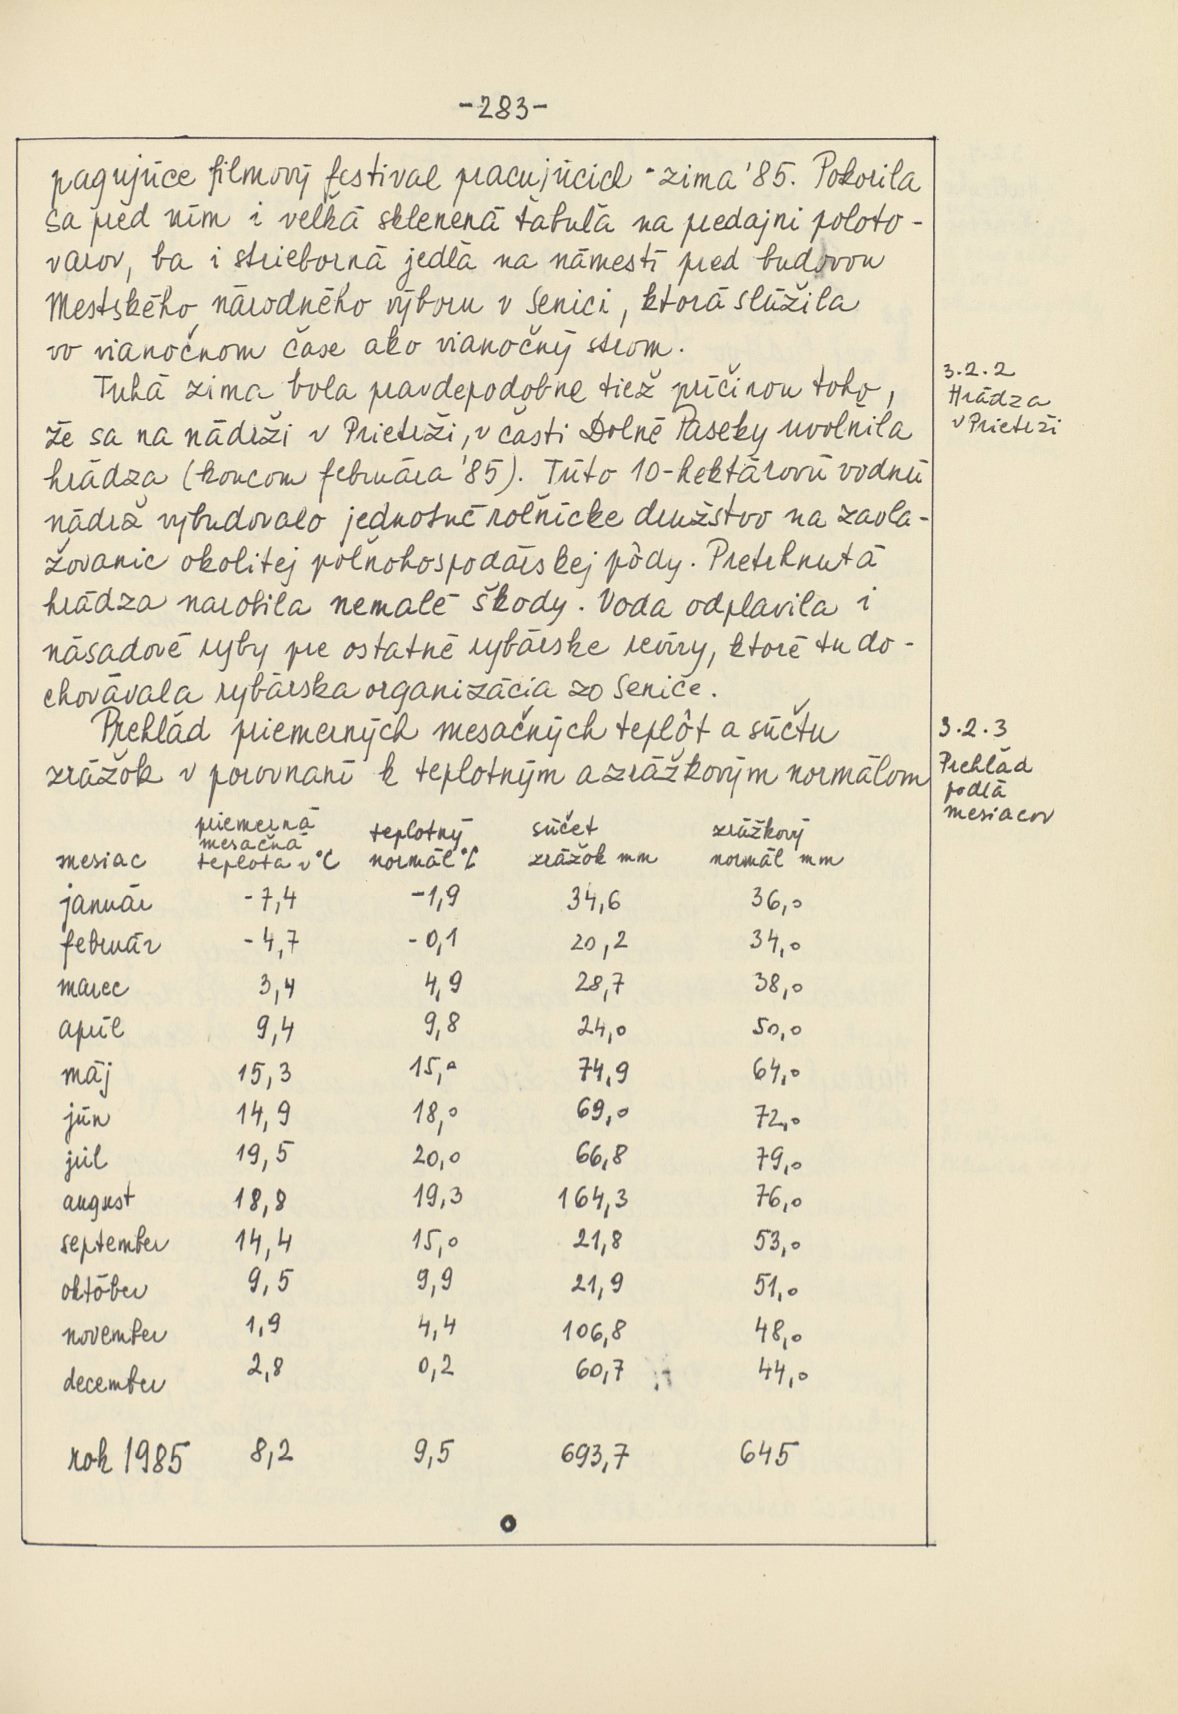 -283-
pagujúce filmový festival pracujúcich - zima '85. Pokorila
sa pred ním i veľká sklenená tabuľa na predajni poloto-
varov, ba i strieborná jedľa na námestí pred budovou
Mestského národného výboru v Senici, ktorá slúžila
vo vianočnom čase ako vianočný strom.
Tuhá zima bola pravdepodobne tiež príčinou toho,
že sa na nádrži v Prietrži, v časti Dolné Paseky uvoľnila
hrádza (koncom februára '85). Túto 10-hektárovú vodnú
nádrž vybudovalo jednotné roľnícke družstvo na zavla-
žovanie okolitej poľnohospodárskej pôdy. Pretrhnutá
hrádza narobila nemalé škody. Voda odplavila i
násadové ryby pre ostatné rybárske revíry, ktoré tu do-
chovávala rybárska organizácia zo Senice.
Prehľad priemerných mesačných teplôt a súčtu
zrážok v porovnaní k teplotným a zrážkovým normálom
3.2.2
Hrádza
v Prietrži
3.2.3
Prehľad
podľa
mesiacov
mesiac priemerná mesačná teplota v °C teplotný normál °C súčet zrážok mm zrážkový normál mm
január -7,4 -1,9 34,6 36,0
február -4,7 -0,1 20,2 34,0
marec 3,4 4,9 28,7 38,0
apríl 9,4 9,8 24,0 50,0
máj 15,3 15,0 74,9 64,0
jún 14,9 18,0 69,0 72,0
júl 19,5 20,0 66,8 79,0
august 18,8 19,3 164,3 76,0
september 14,4 15,0 21,8 53,0
október 9,5 9,9 21,9 51,0
november 1,9 4,4 106,8 48,0
december 2,8 0,2 60,7 44,0
rok 1985 8,2 9,5 693,7 645